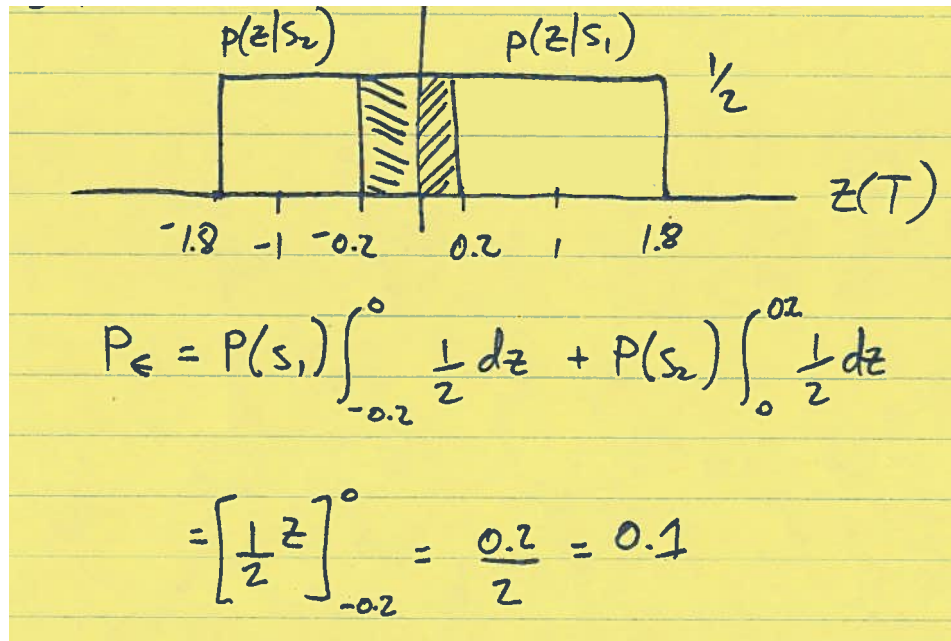 p(z|s₂) p(z|s₁) 1/2
-1.8 -1 -0.2 0.2 1 1.8 z(T)
P∈ = P(s₁) ∫_{-0.2}^{0} 1/2 dz + P(s₂) ∫_{0}^{02} 1/2 dz
= [1/2 z]_{-0.2}^{0} = 0.2/2 = 0.1